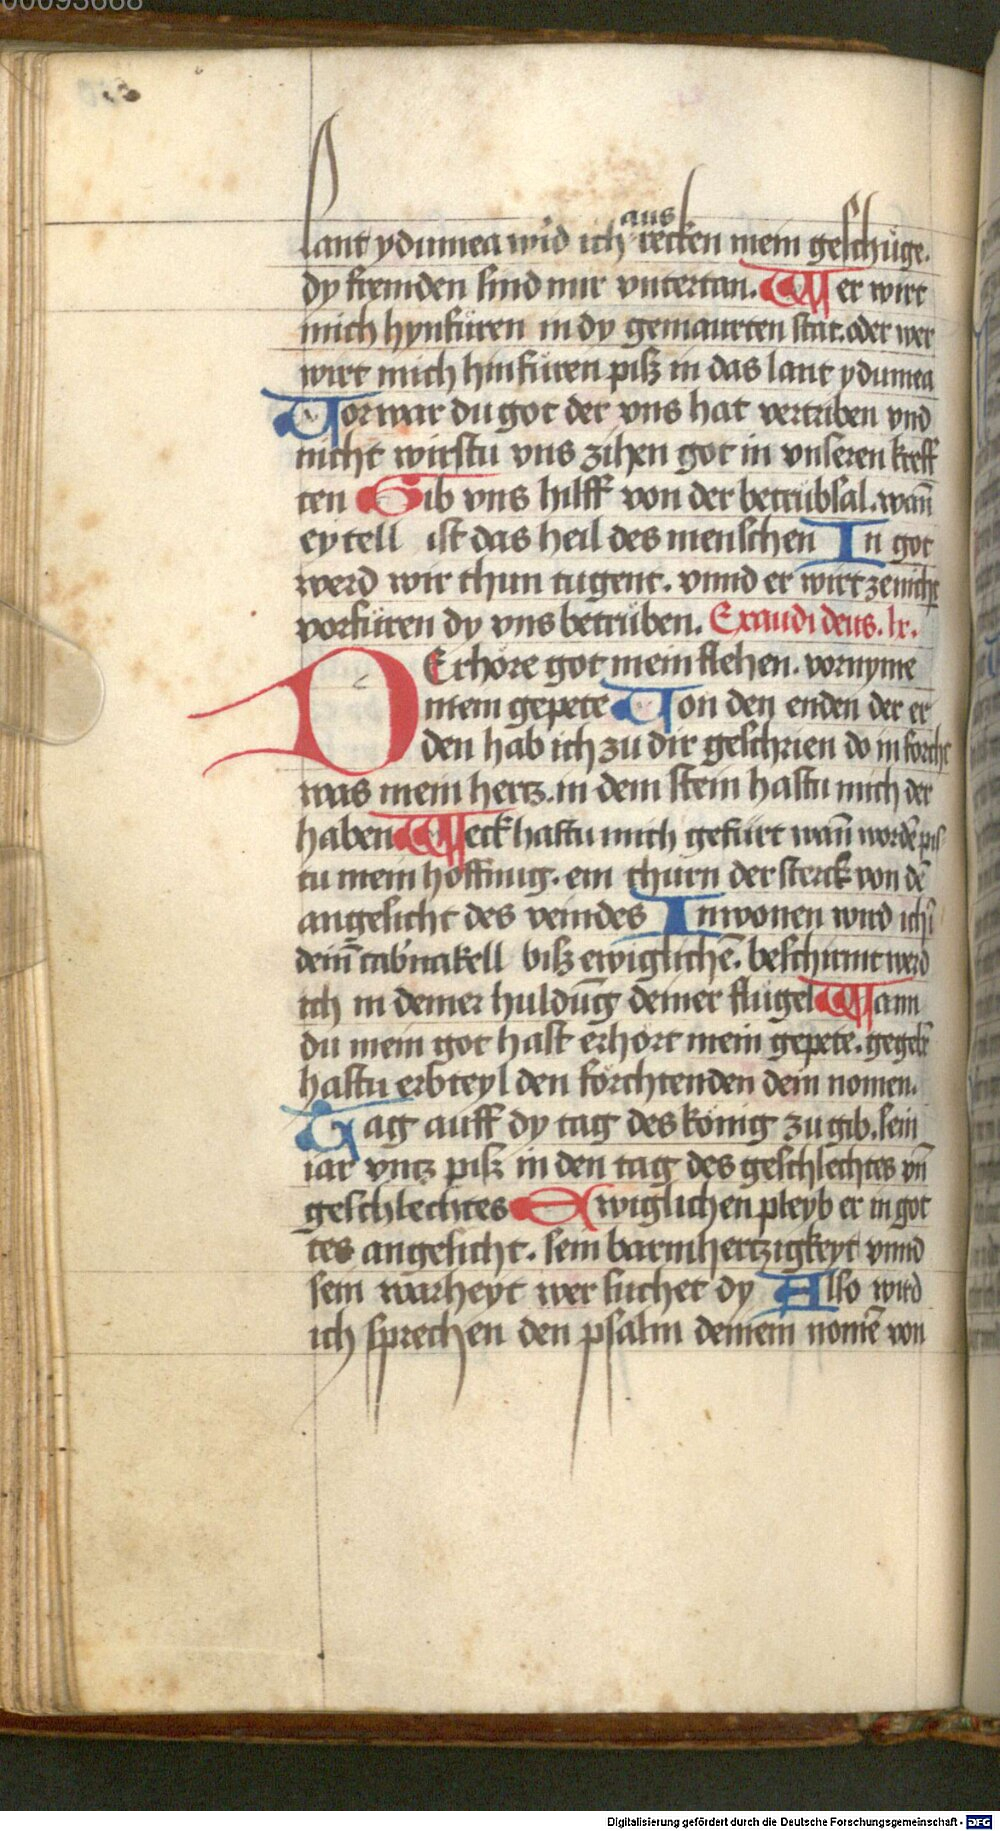 00093668
aus
lant ydumea wird ich recken mein geschüge.
dy fremden sind mir vntertan. Wer wirt
mich hynfüren in dy gemaurten stat. oder wer
wirt mich hinfüren piß in das lant ydumea
Vorwar du got der vns hat vertriben vnd
nicht wirstu vns zihen got in vnseren kreff
ten Gib vns hilff von der betrübsal. wañ
eytell ist das heil des menschen In got
werd wir thun tugent. vnnd er wirt zenicht
vorfüren dy vns betrüben. Exaudi deus. lx.
DErhöre got mein flehen. vornyme
mein gepete Von den enden der er
den hab ich zu dir geschrien do in forcht
was mein hertz. in dem stein hastu mich der
haben Weck hastu mich gefürt wañ wordē pis
tu mein hoffnug. ein thurn der sterck von dē
angesicht des veindes Inwonen wird ich ī
deim̄ tab'nakell biß ewiglichē. beschirmt werd
ich in deiner huldūg deiner flügel Wann
du mein got hast erhort mein gepete. gegebē
hastu erbteyl den förchtenden dein nomen.
Tag auff dy tag des könig zu gib. sein
iar vntz piß in den tag des geschlechtes vn̄
geschlechtes Ewiglichen pleyb er in got
tes angesicht. sein barmhertzigkeyt vnnd
sein warheyt wer suchet dy Also wird
ich sprechen den psalm deinem nomē von
Digitalisierung gefördert durch die Deutsche Forschungsgemeinschaft - DFG